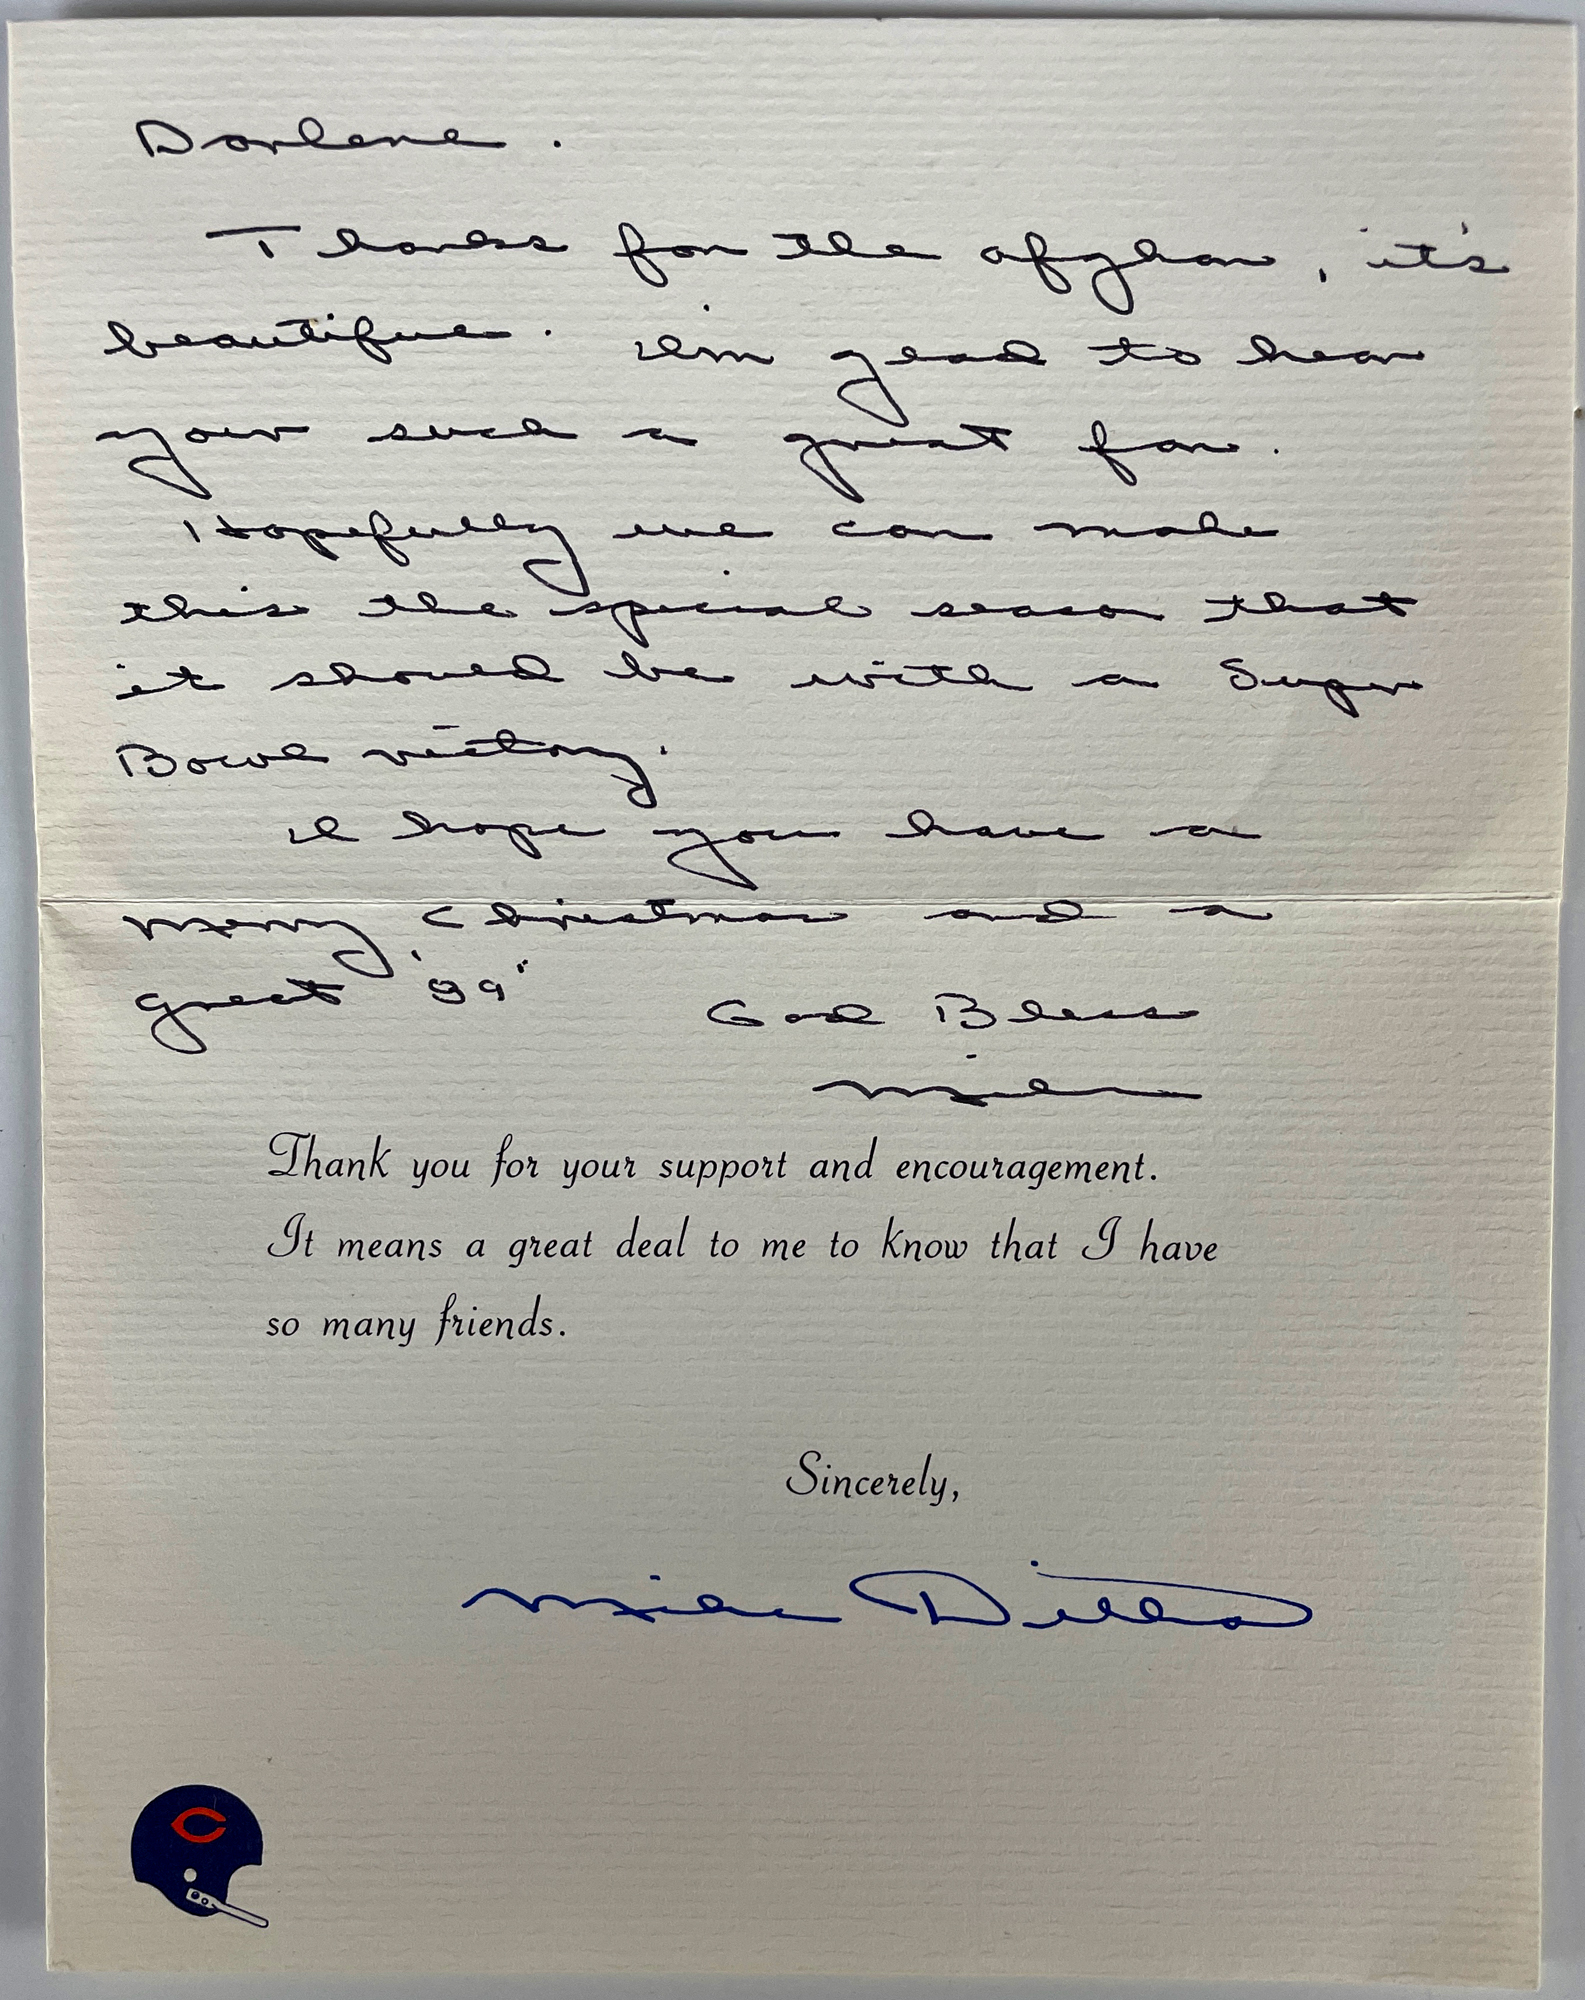 Darlene.
Thanks for the afghan, it's
beautiful. I'm glad to hear
your such a great fan.
Hopefully we can make
this the special season that
it should be with a Super
Bowl victory.
I hope you have a
Merry Christmas and a
great '89"
God Bless
Mike
Thank you for your support and encouragement.
It means a great deal to me to know that I have
so many friends.
Sincerely,
Mike Ditka
C